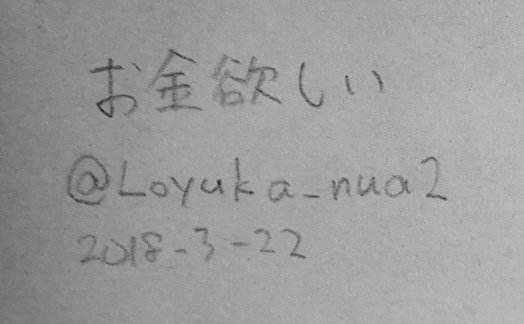 お金欲しい
@Loyuka_nua2
2018-3-22